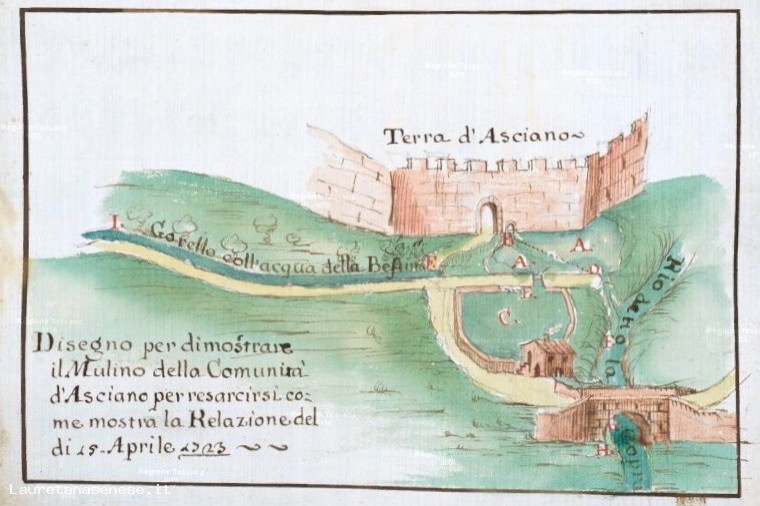 Terra d'Asciano
I.
Gorello coll'acqua della Bestina
E.
B.
A.
A.
D.
F.
C.
Rio detto la
F.
G.
H.
Disegno per dimostrare
il Mulino della Comunità
d'Asciano per resarcirsi co=
me mostra la Relazione del
di 15. Aprile 1723
Lauretanasenese.it